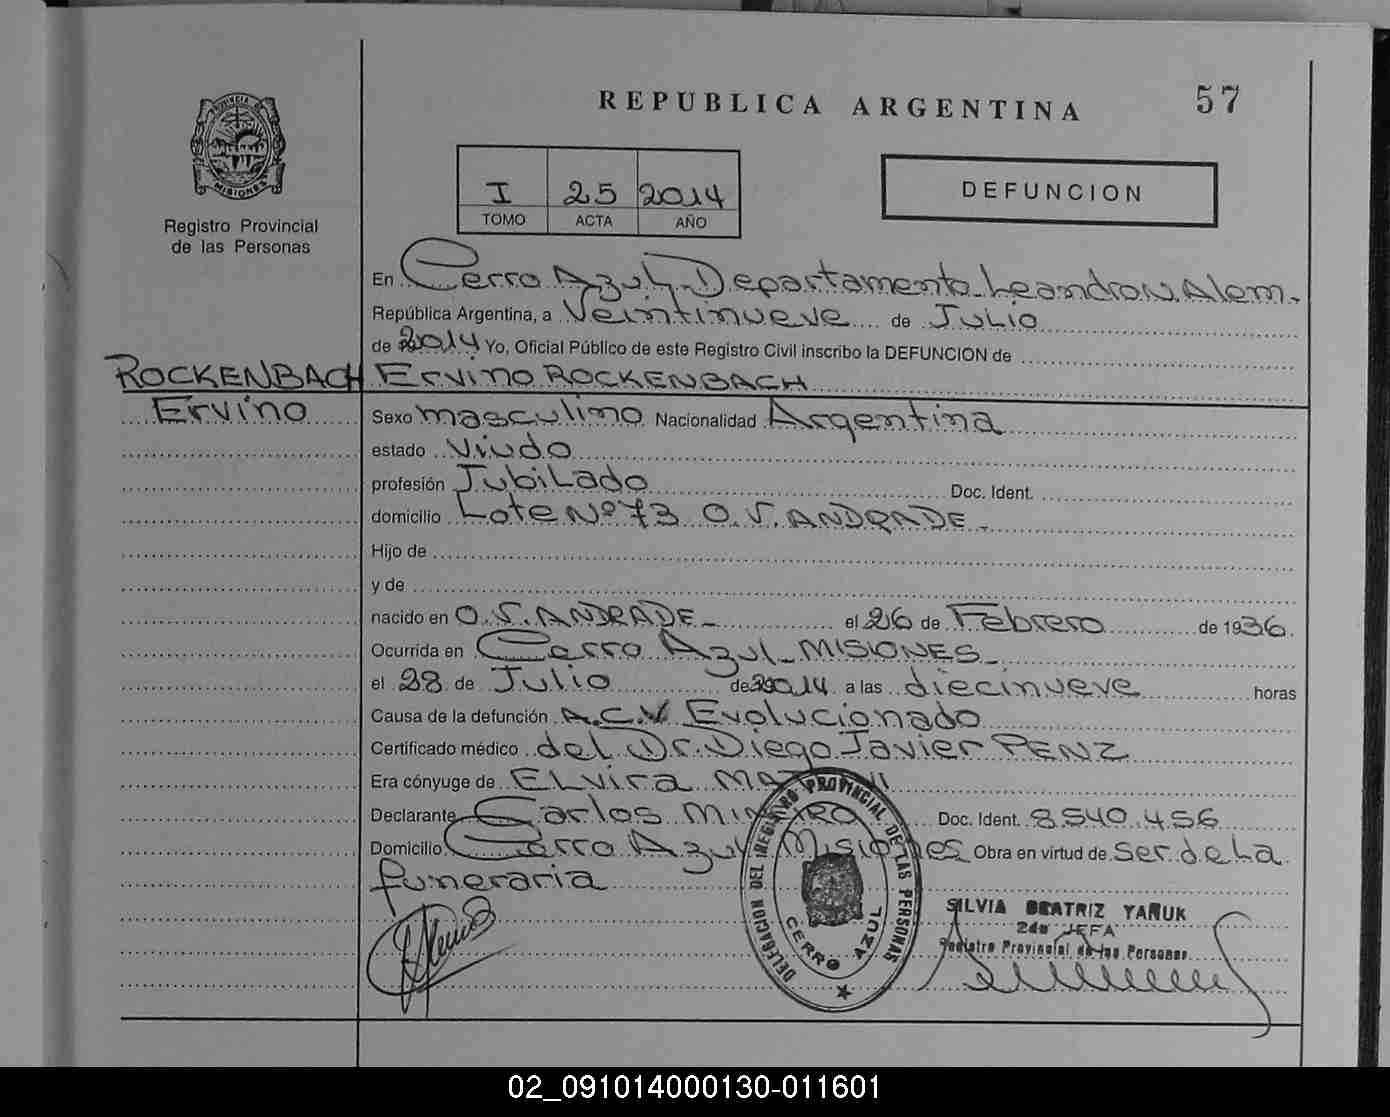 REPUBLICA ARGENTINA
57
PROVINCIA DE
MISIONES
Registro Provincial
de las Personas
I 25 2014
TOMO ACTA AÑO
DEFUNCION
En Cerro Azul Departamento Leandro N. Alem.
República Argentina, a Veintinueve de Julio
de 2014 Yo, Oficial Público de este Registro Civil inscribo la DEFUNCION de
ROCKENBACH Ervino ROCKENBACH
Ervino
Sexo masculino Nacionalidad Argentina
estado Viudo
profesión Jubilado Doc. Ident.
domicilio Lote Nº 73 O.V. ANDRADE
Hijo de
y de
nacido en O.V. ANDRADE el 26 de Febrero de 1936.
Ocurrida en Cerro Azul - MISIONES
el 28 de Julio de 2014 a las diecinueve horas
Causa de la defunción A.C.V Evolucionado
Certificado médico del Dr. Diego Javier PENZ
Era cónyuge de Elvira
Declarante Carlos Doc. Ident. 8540.456
Domicilio Cerro Azul Misiones Obra en virtud de ser de la
funeraria
DELEGACION DEL REGISTRO PROVINCIAL DE LAS PERSONAS
CERRO AZUL
SILVIA BEATRIZ YAÑUK
2da JEFA
Registro Provincial de las Personas
02_091014000130-011601